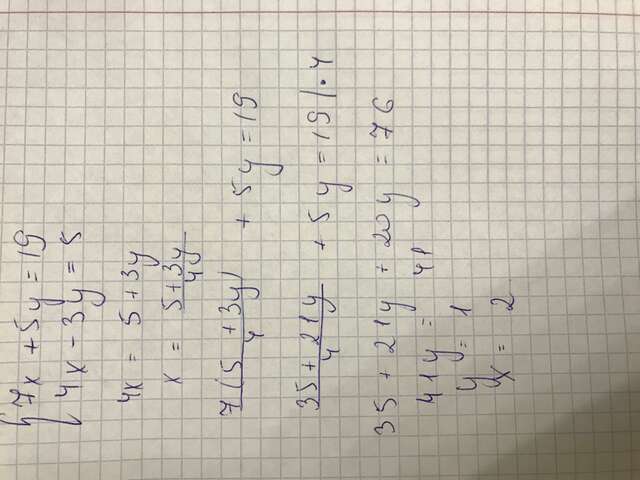 7x + 5y = 19
4x - 3y = 5
4x = 5 + 3y
x = (5 + 3y)/4
7(5 + 3y)/4 + 5y = 19
(35 + 21y)/4 + 5y = 19 | • 4
35 + 21y + 20y = 76
41y = 41
y = 1
x = 2